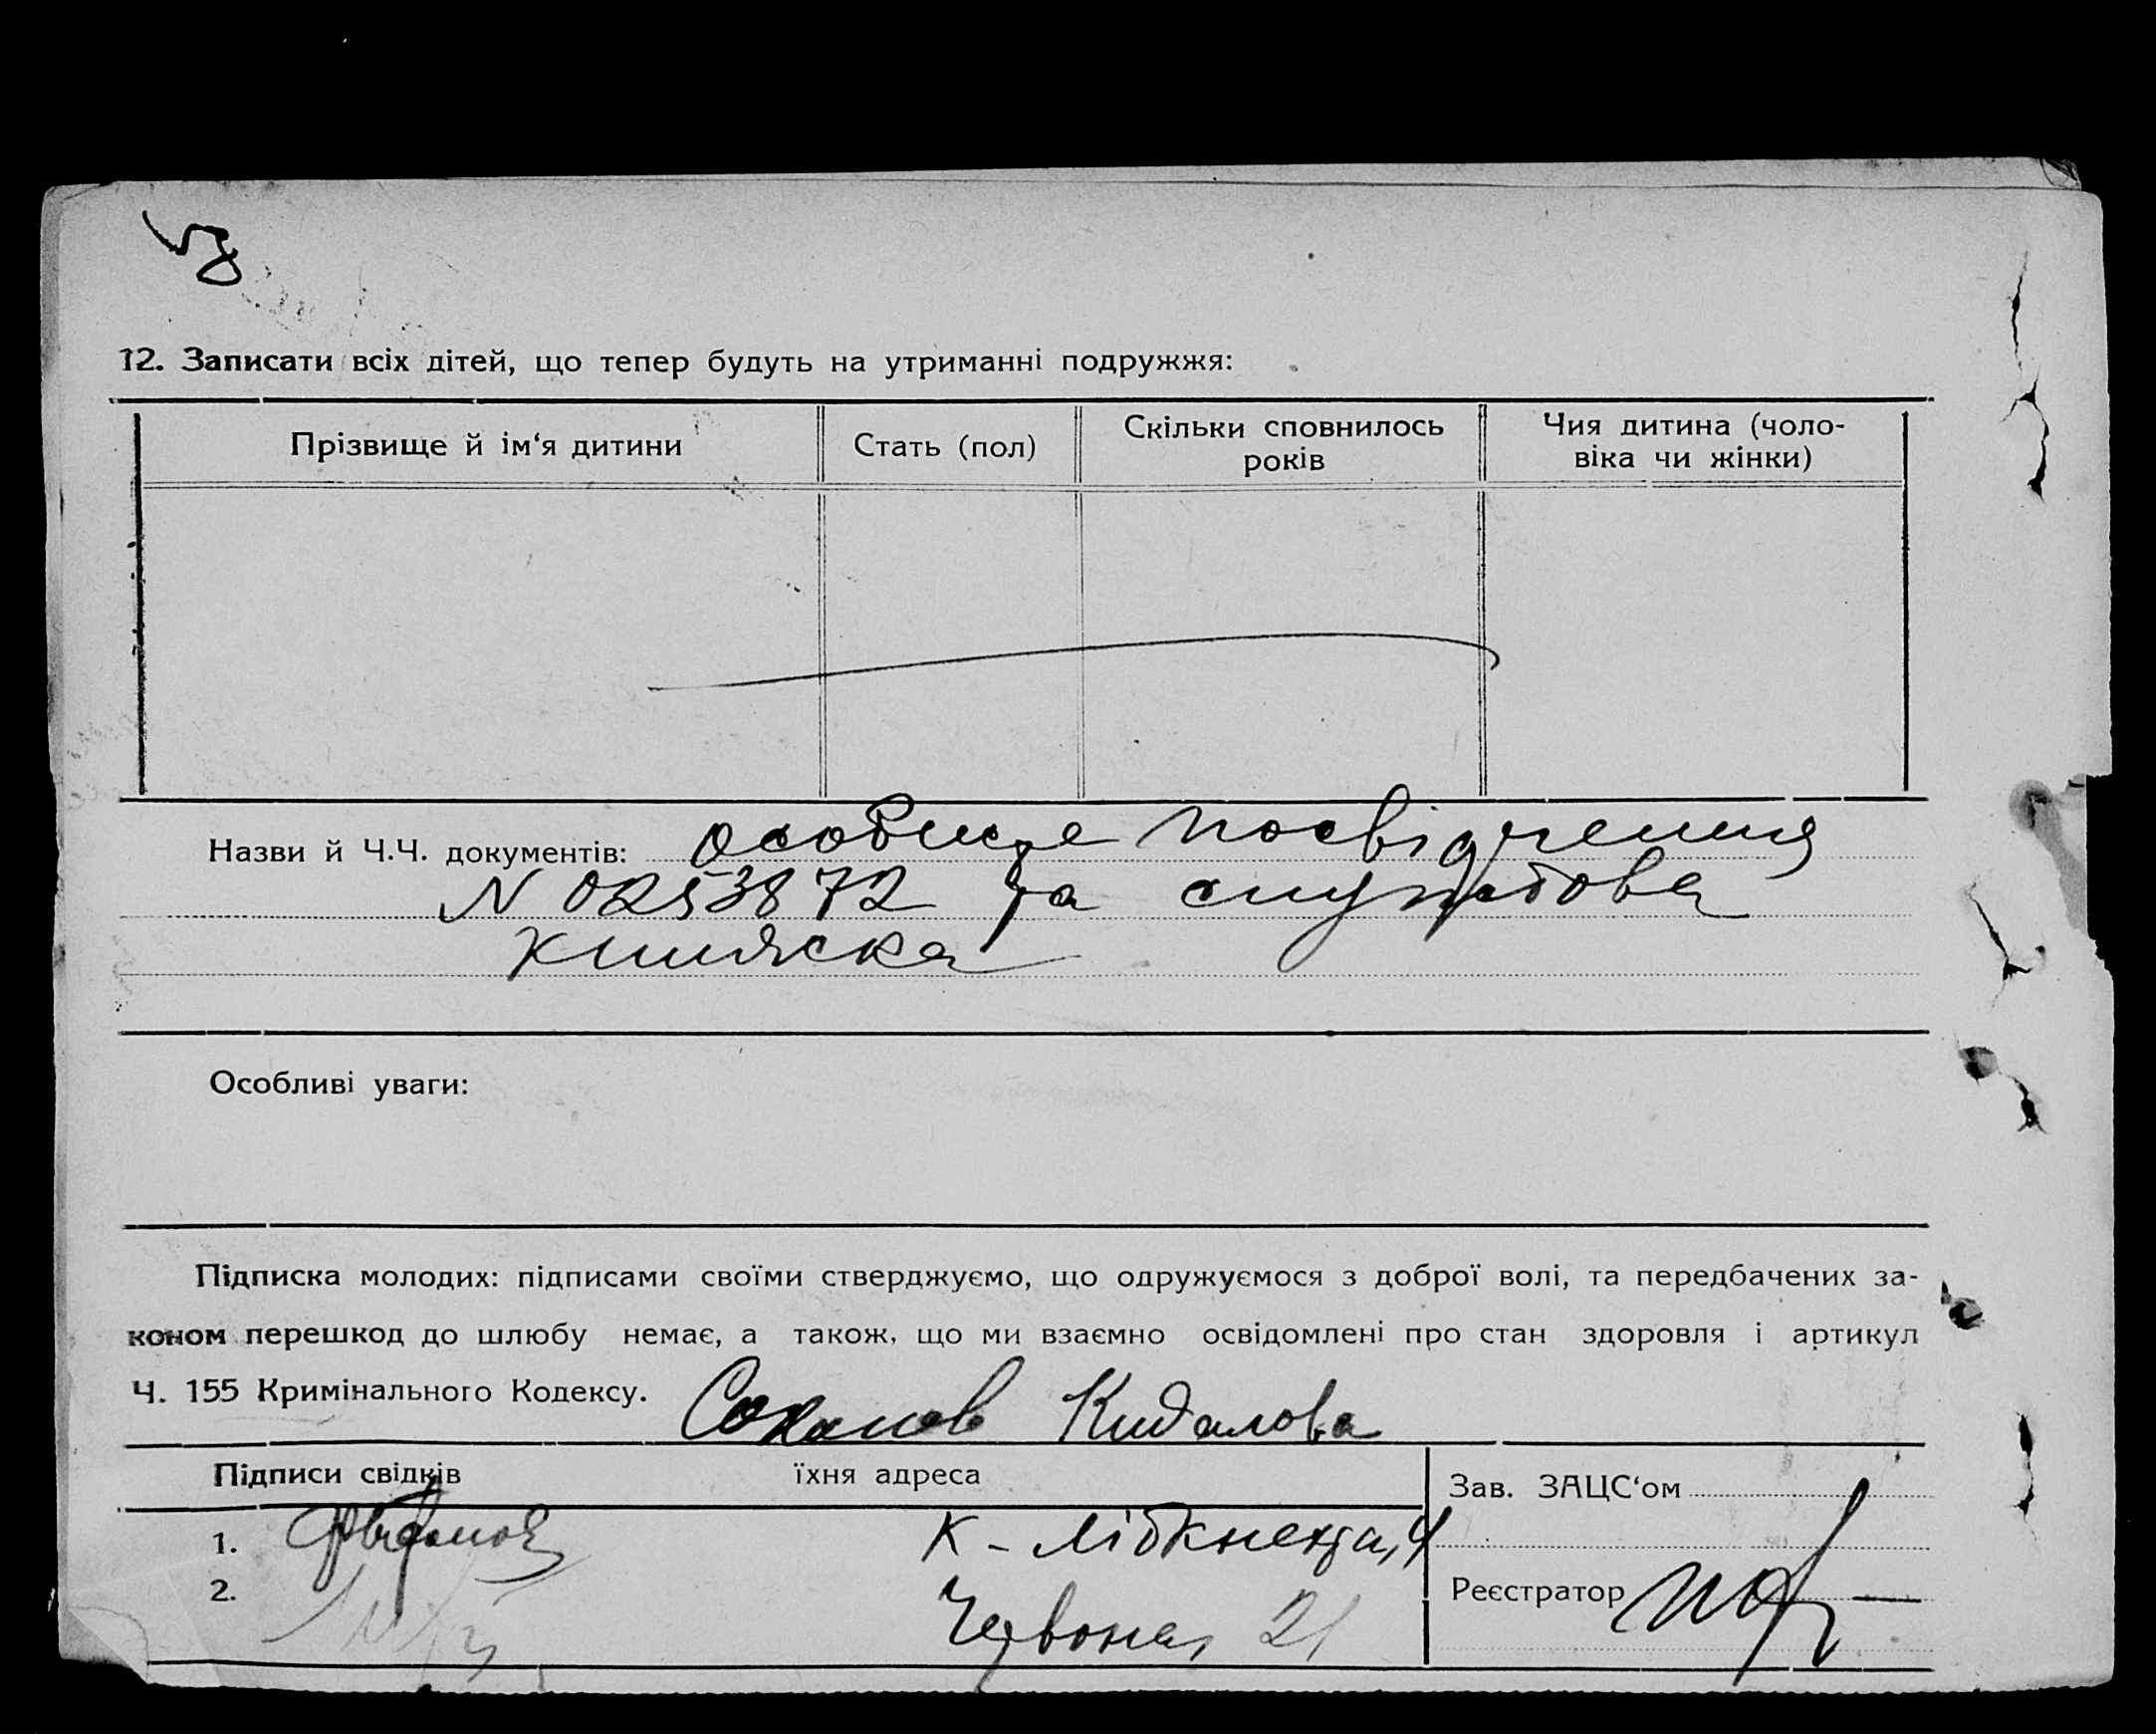 12. Записати всіх дітей, що тепер будуть на утриманні подружжя:
Прізвище й ім‘я дитини
Стать (пол)
Скільки сповнилось
років
Чия дитина (чоло-
віка чи жінки)
Назви й Ч.Ч. документів: особисте посвідчення
N 0253872 та службова
книжка
Особливі уваги:
Підписка молодих: підписами своїми стверджуємо, що одружуємося з доброї волі, та передбачених за-
коном перешкод до шлюбу немає, а також, що ми взаємно освідомлені про стан здоровля і артикул
Ч. 155 Кримінального Кодексу. Кидалова
Підписи свідків їхня адреса
Зав. ЗАЦС‘ом
1. К - Лібкнехта, 4
2. Червона, 21
Реєстратор